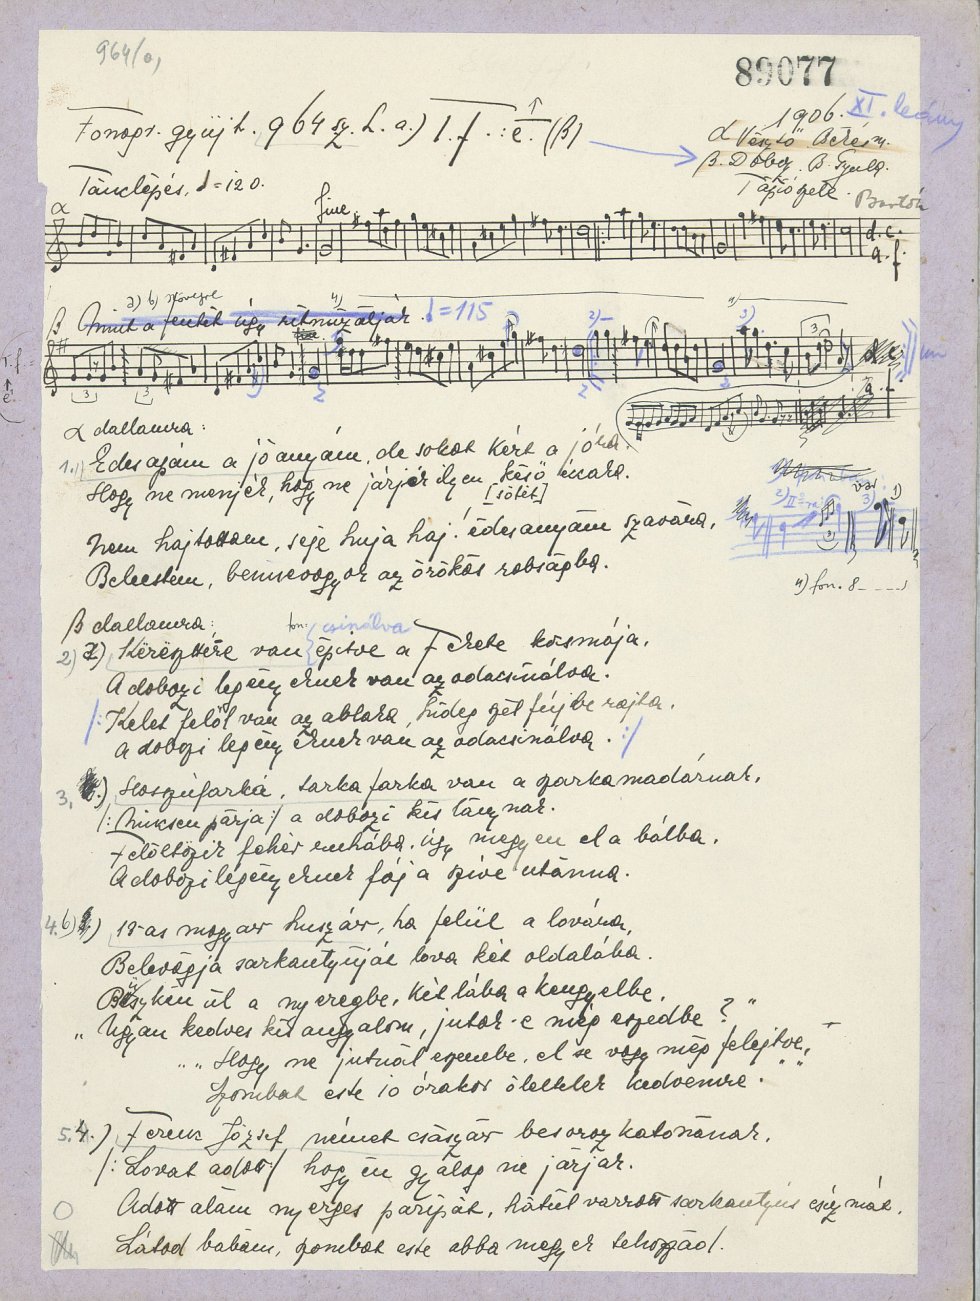 964/a,
89077
Fonogr. gyűjt. 964 sz. h. a.) 1. f. : e. (β)
1906. XI. leány
α Vésztő Békésm.
β. Doboz. B. Gyula.
Tápiószele.
Bartók
Tánclépés, ♩=120.
α
fine
d. c.
a. f.
a) b) szöveggel
4)
β Mint a fentit úgy ritmizálják ♩=115
2)
3)
3
3
3
α dallamra:
1.) Édesapám a jóanyám, de sokat kért a jóra.
Hogy ne menjek, hogy ne járjak ilyen késő éccaka.
[sötét]
Nem hajtottam, seje huja haj! édesanyám szavára,
Beleestem, bennevagyok az örökös rabságba.
var
2) II
3)
1)
4) fon. 8----
β dallamra:
fon: csinálva
2) Keresztére van építve a Fekete kocsmája,
A dobozi legény ennek van az odacsinálva.
/: Kelet felől van az ablaka, hideg szél fújbe rajta,
A dobozi legény ennek van az odacsinálva. :/
3.) Hosszúfarká, tarka farka van a szarkamadárnak,
/: Nincsen párja :/ a dobozi kis lánynak.
Felöltözik fehér ruhába, úgy megyen el a bálba.
A dobozi legény ennek fáj a szíve utánna.
4. b) 13-as magyar huszár, ha felül a lovára,
Belevágja sarkantyúját lova két oldalába.
Büszkén ül a nyeregbe, két lába a kengyelbe,
„Ugyan kedves kis angyalom, jutok-e még eszedbe?"
„„Hogy ne jutnál eszembe, el se vagy még felejtve,
Szombat este 10 órakor ölellek kedvemre.""
5. 4.) Ferenc József német császár besoroz katonának,
/: Lovat adott :/ hogy én gyalog ne járjak.
Adott alám nyerges paripát, hátúl varrott sarkantyús csizmát,
Látod babám, szombat este abba megyek tehozzád.